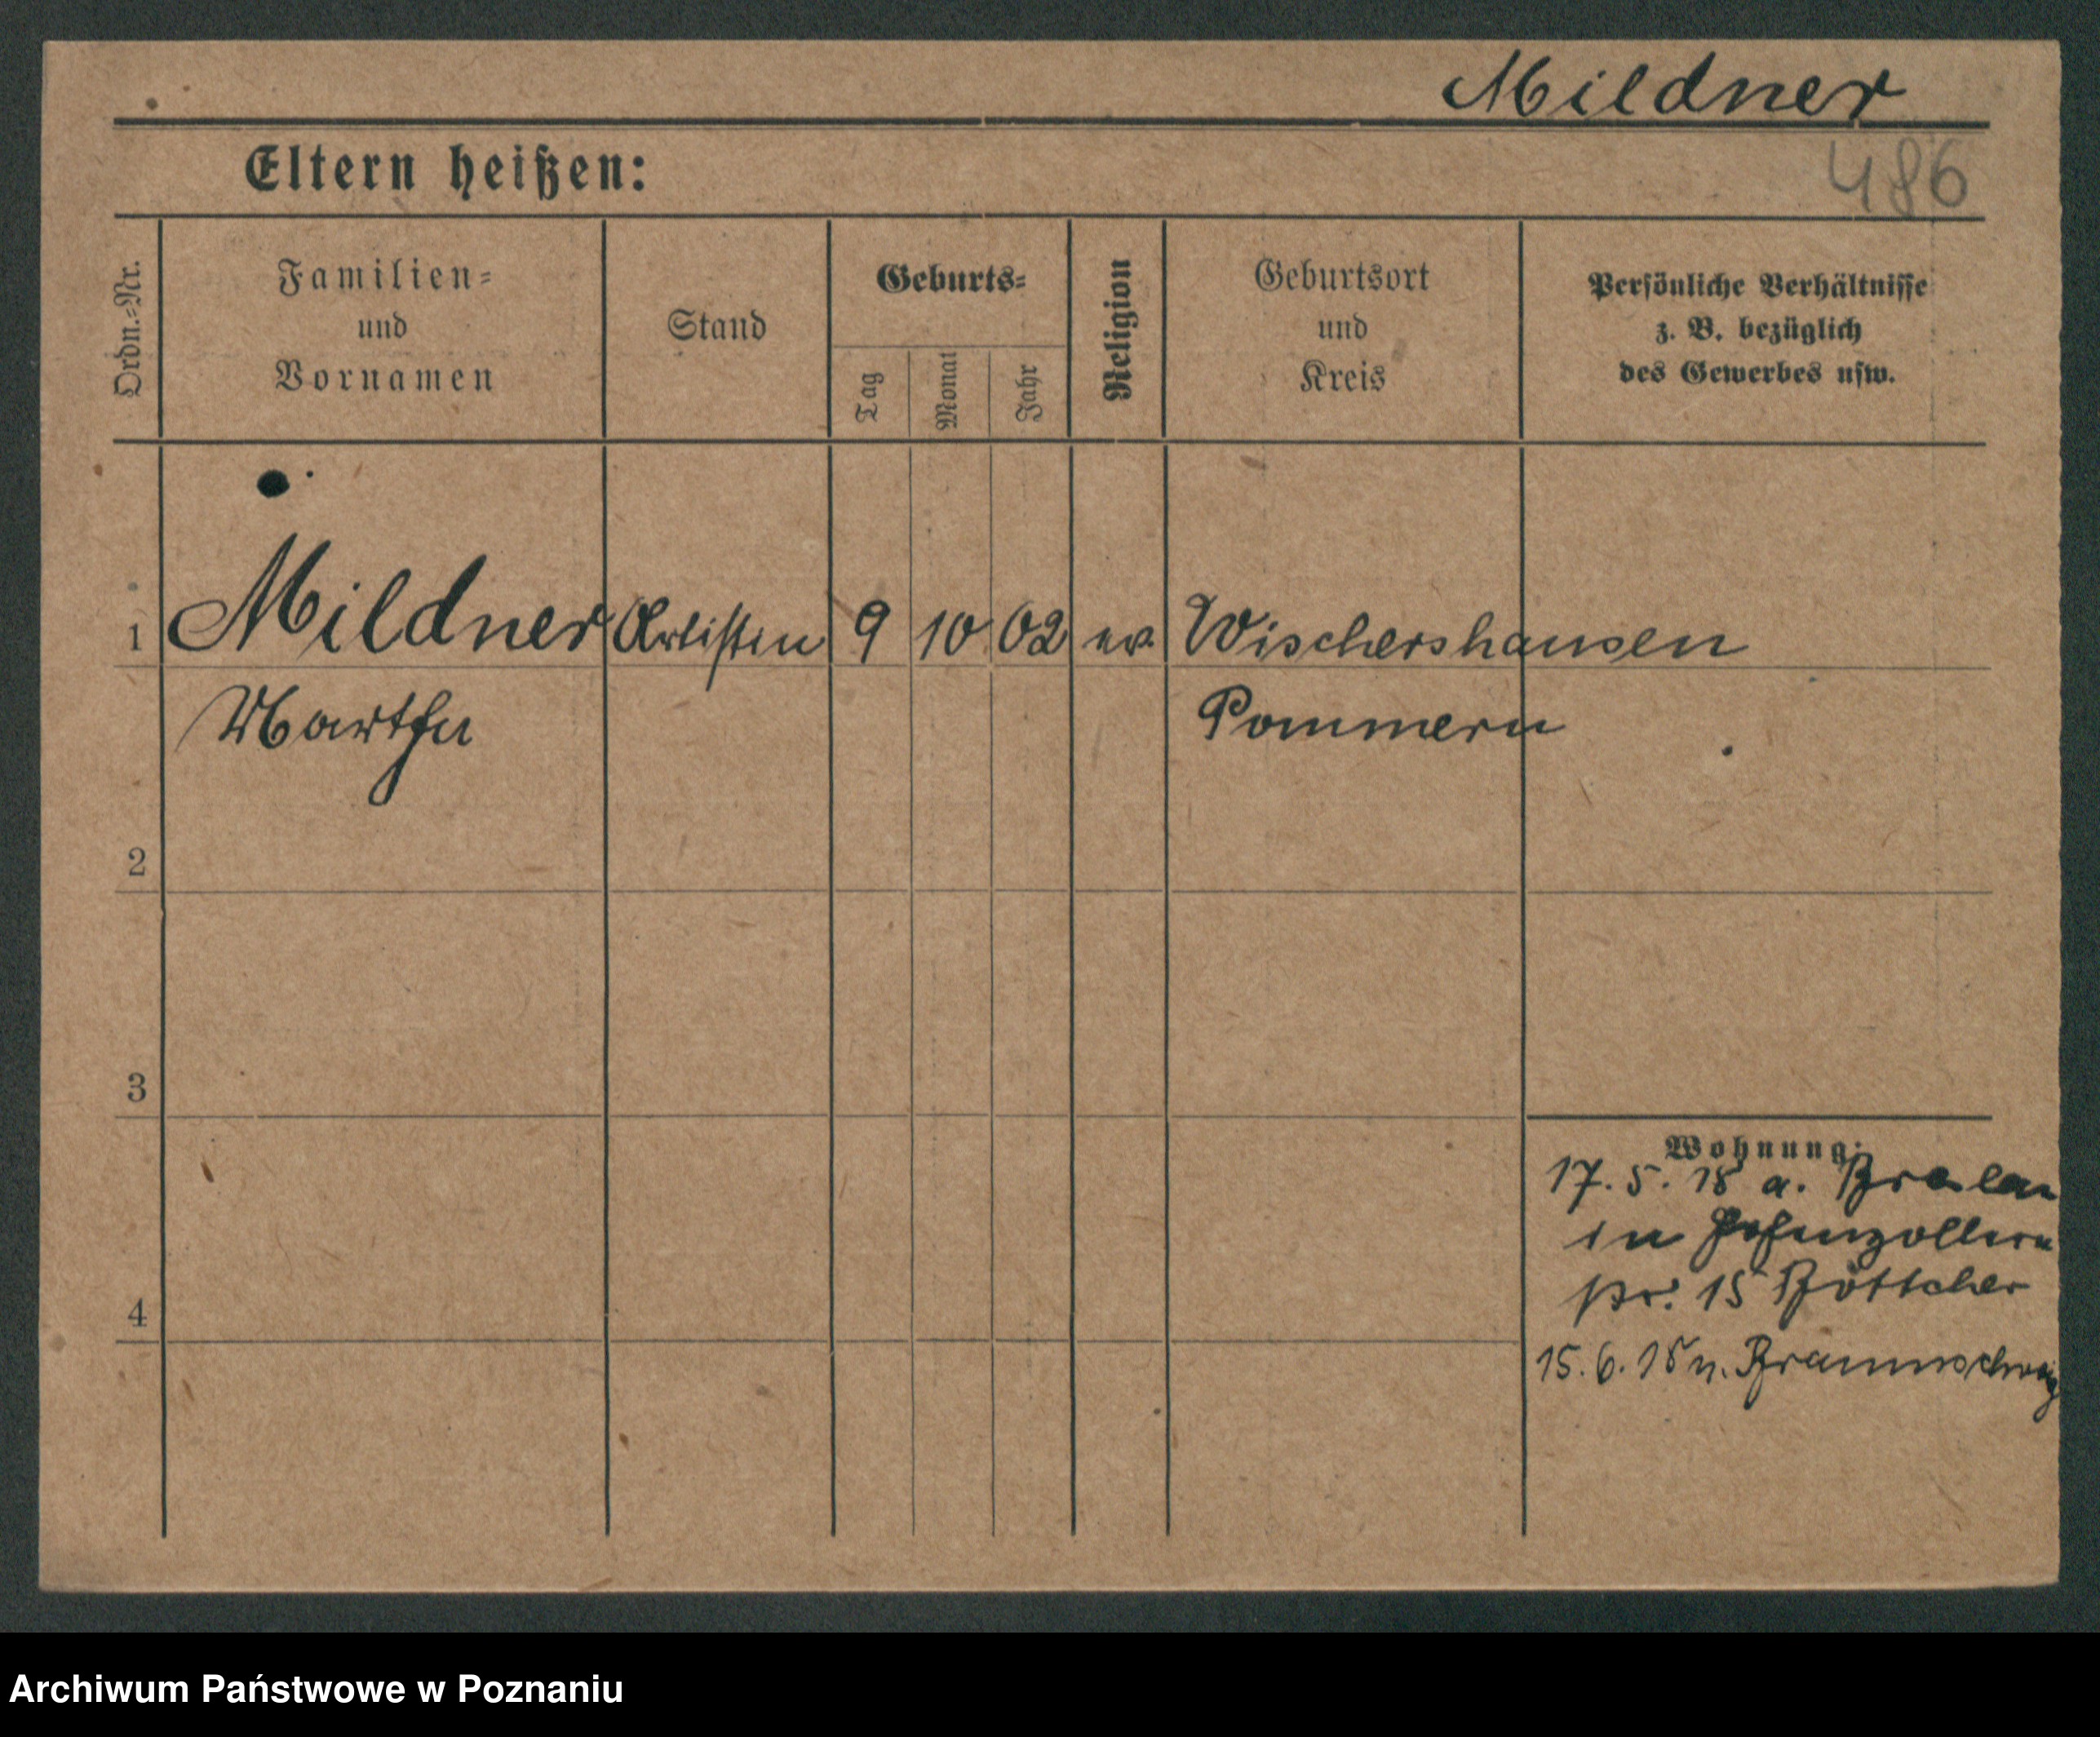 Mildner
486
Eltern heißen:
Ordn.-Nr.
Familien-
und
Vornamen
Stand
Geburts-
Tag
Monat
Jahr
Religion
Geburtsort
und
Kreis
Persönliche Verhältnisse
z. B. bezüglich
des Gewerbes usw.
1 Mildner Artistin 9 10 02 ev. Wischershausen
Martha Pommern
2
3
4
Wohnung:
17. 5. 18 a. Breslau
in Hohenzollern
str. 15 Böttcher
15. 6. 18 n. Braunschweig
Archiwum Państwowe w Poznaniu